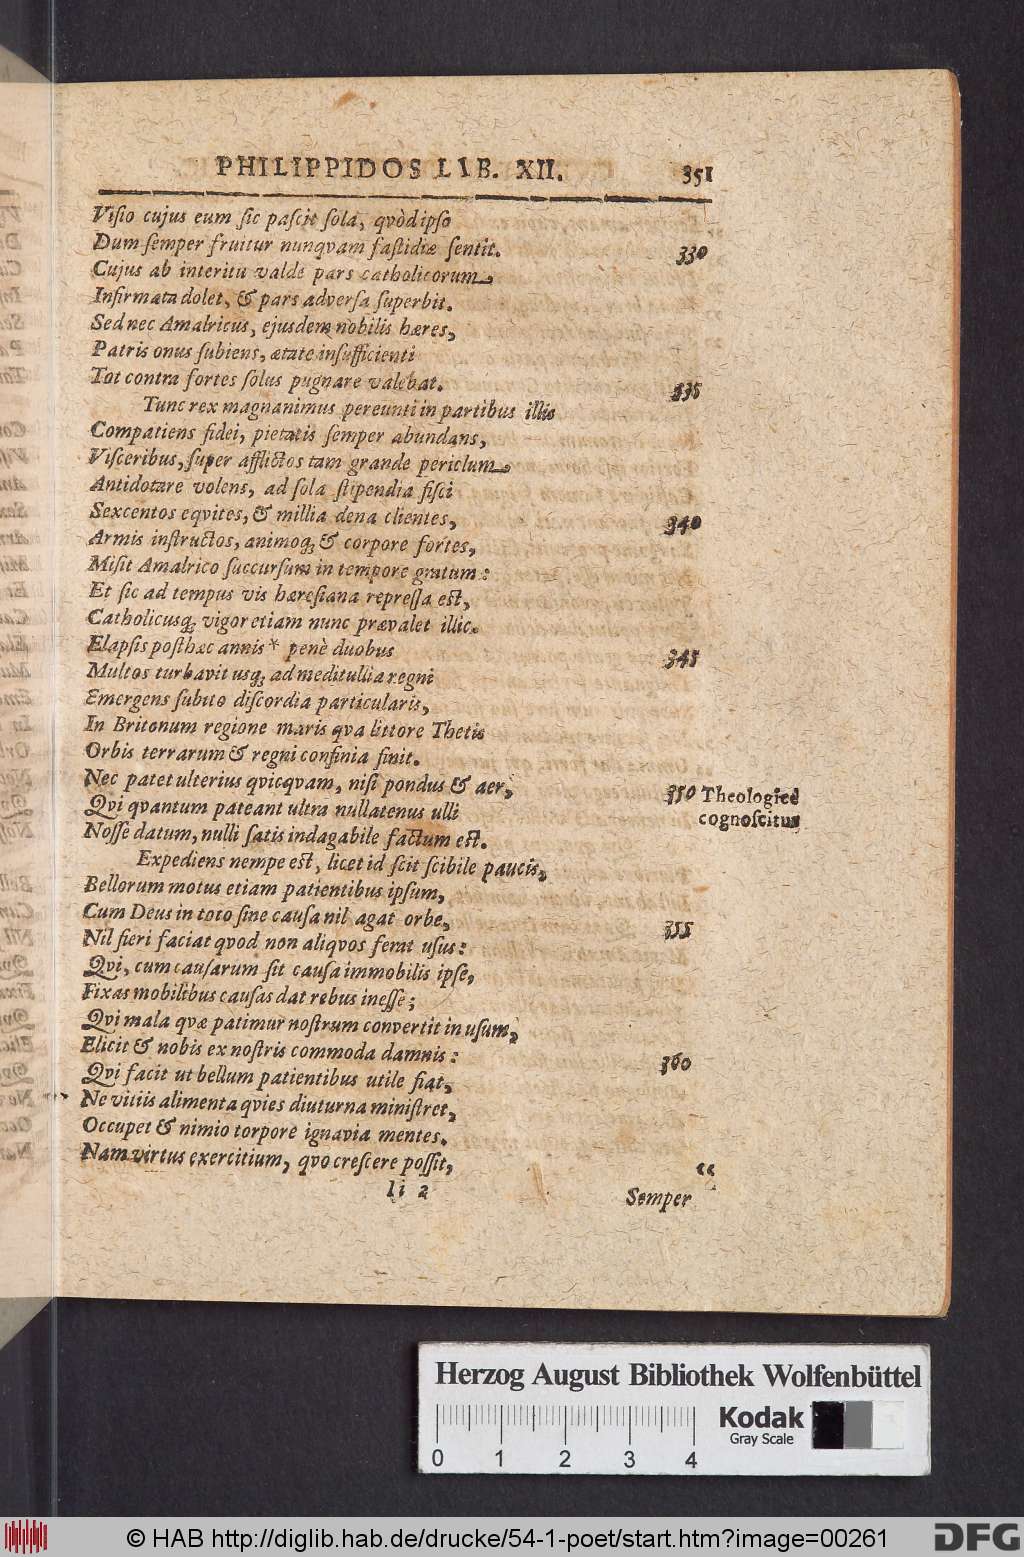 PHILIPPIDOS LIB. XII. 351
Visio cujus eum sic pascit sola, qvòd ipso
Dum semper fruitur nunqvam fastidiæ sentit. 330
Cujus ab interitu valde pars catholicorum
Infirmata dolet, & pars adversa superbit.
Sed nec Amalricus, ejusdem nobilis hæres,
Patris onus subiens, ætate insufficienti
Tot contra fortes solus pugnare valebat. 335
Tunc rex magnanimus pereunti in partibus illis
Compatiens fidei, pietatis semper abundans,
Visceribus, super afflictos tam grande periclum
Antidotare volens, ad sola stipendia fisci
Sexcentos eqvites, & millia dena clientes, 340
Armis instructos, animoq; & corpore fortes,
Misit Amalrico succursum in tempore gratum:
Et sic ad tempus vis hæresiana repressa est,
Catholicusq; vigor etiam nunc prævalet illic.
Elapsis posthæc annis * penè duobus 345
Multos turbavit usq; ad meditullia regni
Emergens subito discordia particularis,
In Britonum regione maris qva littore Thetis
Orbis terrarum & regni confinia finit.
Nec patet ulterius qvicqvam, nisi pondus & aer, 350 Theologicè
Qvi qvantum pateant ultra nullatenus ulli cognoscitur
Nosse datum, nulli satis indagabile factum est.
Expediens nempe est, licet id scit scibile paucis,
Bellorum motus etiam patientibus ipsum,
Cum Deus in toto sine causa nil agat orbe, 355
Nil fieri faciat qvod non aliqvos ferat usus:
Qvi, cum causarum sit causa immobilis ipse,
Fixas mobilibus causas dat rebus inesse;
Qvi mala qvæ patimur nostrum convertit in usum,
Elicit & nobis ex nostris commoda damnis: 360
Qvi facit ut bellum patientibus utile fiat,
Ne vitiis alimenta qvies diuturna ministret,
Occupet & nimio torpore ignavia mentes.
Nam virtus exercitium, qvo crescere possit, “
Ii 2 Semper
Herzog August Bibliothek Wolfenbüttel
Kodak
Gray Scale
0 1 2 3 4
© HAB http://diglib.hab.de/drucke/54-1-poet/start.htm?image=00261
DFG